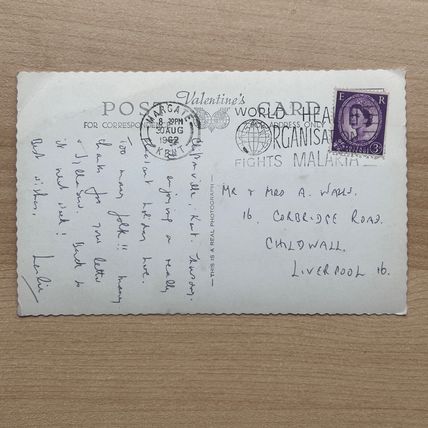 Valentine's
POST CARD
FOR CORRESPON
ADDRESS ONLY
MARGATE
8 30PM
30 AUG
1962
KENT
WORLD HEA
ORGANISAT
FIGHTS MALARIA
E R
3D
THIS IS A REAL PHOTOGRAPH
Cliftonville, Kent, Thursday.
enjoying a really
excellent holiday here.
Too many folk!! Many
thanks for your letter
Back to
it next week!
Best wishes,
Leslie
MR & MRS A.
16, CORBRIDGE ROAD.
CHILDWALL.
LIVERPOOL 16.